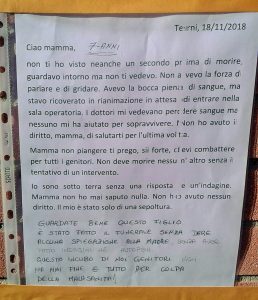 Terni, 18/11/2018
Ciao mamma, 7-ANNI
non ti ho visto neanche un secondo prima di morire,
guardavo intorno ma non ti vedevo. Non avevo la forza di
parlare e di gridare. Avevo la bocca piena di sangue, ma
stavo ricoverato in rianimazione in attesa di entrare nella
sala operatoria. I dottori mi vedevano perdere sangue ma
nessuno mi ha aiutato per sopravvivere. Non ho avuto il
diritto, mamma, di salutarti per l'ultima volta.
Mamma non piangere ti prego, sii forte, devi combattere
per tutti i genitori. Non deve morire nessun' altro senza il
tentativo di un intervento.
Io sono sotto terra senza una risposta e un'indagine.
Mamma non ho mai saputo nulla. Non ho avuto nessun
diritto. Il mio è stato solo di una sepoltura.
GUARDATE BENE QUESTO FIGLIO
E STATO FATTO IL FUNERALE SENZA DARE
ALCUNA SPIEGAZIONE ALLA MADRE SENZA AVER
FATTO
QUESTO INCUBO DI NOI GENITORI NON
HA MAI FINE E TUTTO PER COLPA
DELLA MALASANITÀ!